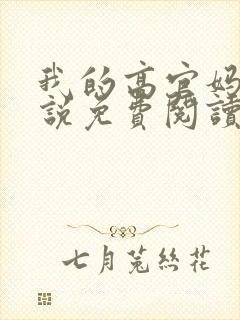 我的高官妈
說免費閱讀
七月菟絲花